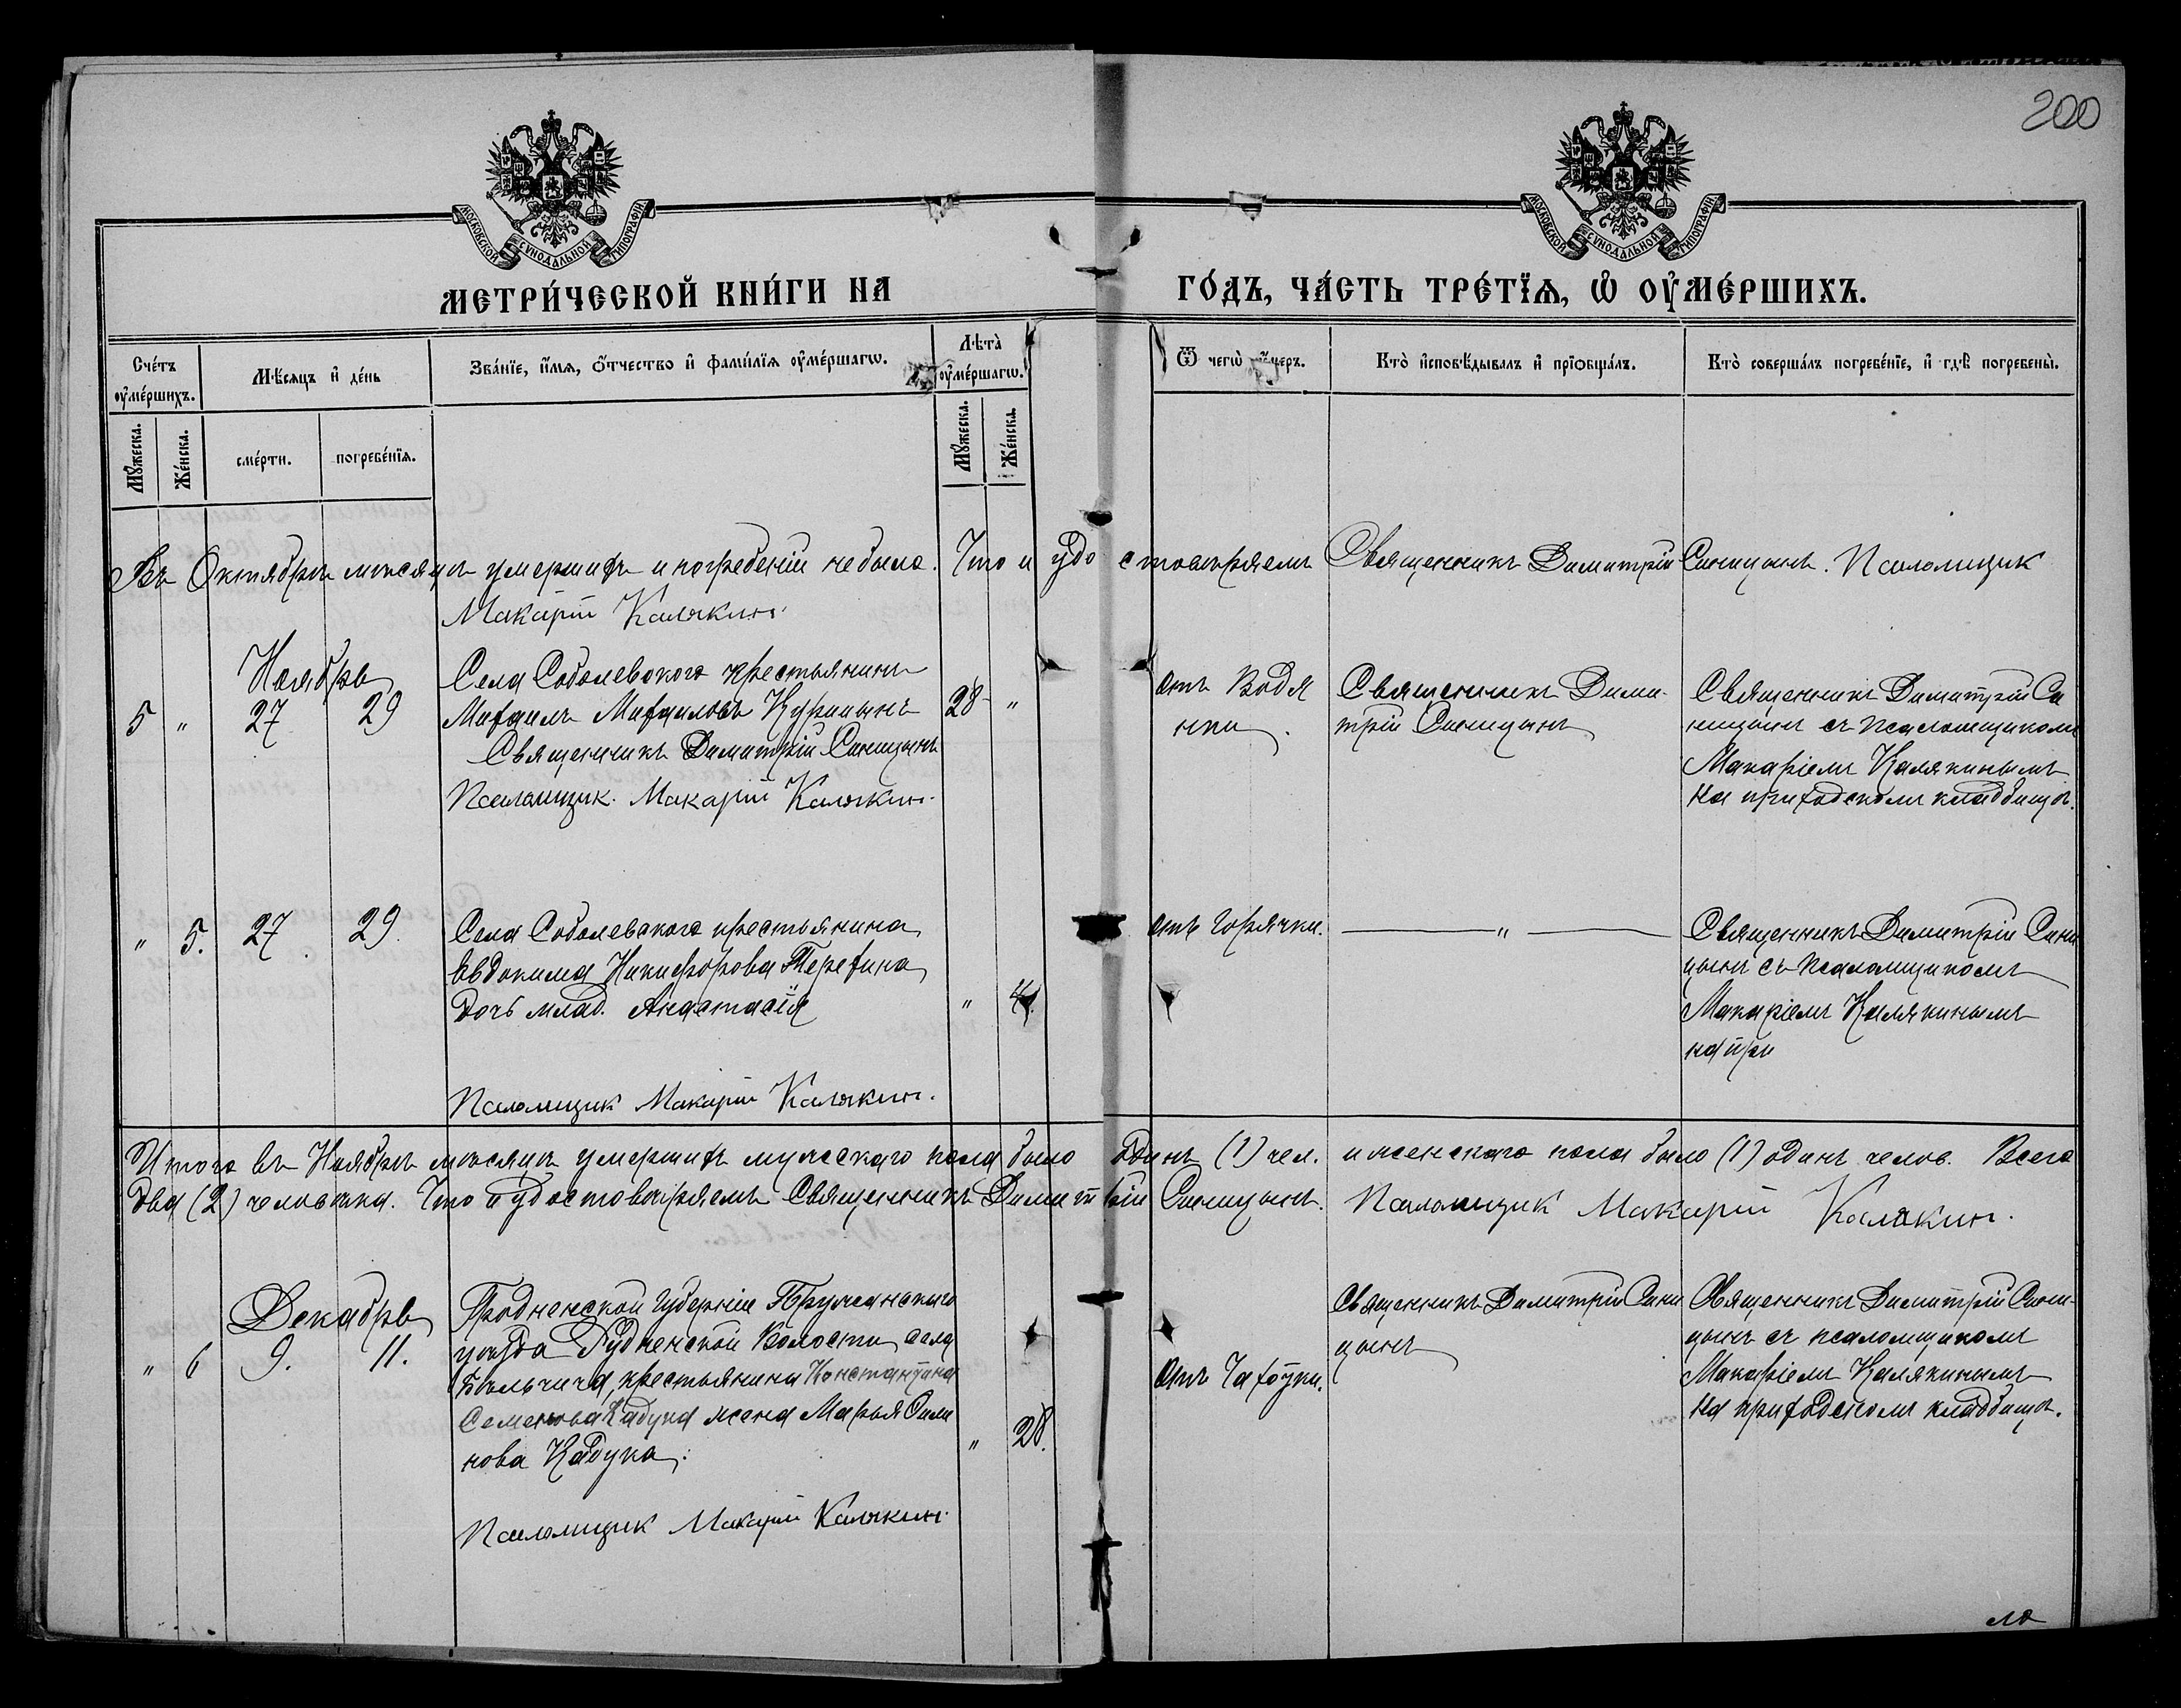 200
МОСКОВСКОЙ СѴНОДАЛЬНОЙ ТИПОГРАФІИ
МОСКОВСКОЙ СѴНОДАЛЬНОЙ ТИПОГРАФІИ
МЕТРИ́ЧЕСКОЙ КНИ́ГИ НА ГО́ДЪ, ЧА́СТЬ ТРЕ́ТЇѦ, Ѡ҆ ОУ҆МЕ́РШИХЪ.
Сче́тъ оу҆ме́ршихъ.
Мѣ́сяцъ и҆ де́нь
Зва́нїе, и҆́мѧ, ѻ҆́тчество и҆ фами́лїѧ оу҆ме́ршагѡ.
Лѣ́та оу҆ме́ршагѡ.
Ѿ чегѡ̀ оу҆́меръ.
Кто̀ и҆сповѣ́дывалъ и҆ прїѡбща́лъ.
Кто̀ соверша́лъ погребе́нїе, и҆ гдѣ̀ погребены̀.
Мꙋ́жеска.
Же́нска.
сме́рти.
погребе́нїѧ.
Мꙋ́жеска.
Же́нска.
Въ Октябрѣ мѣсяцѣ умершихъ и погребеній не было. Что и удостовѣряемъ Священникъ Димитрій Синицынъ. Псаломщик
Макарій Калякин.
Ноябрь
5 " 27 29
Села Соболевского крестьянинъ
Михаилъ Михаиловъ Курицынъ 28 "
Священникъ Димитрій Синицынъ
Псаломщик. Макарій Калякин.
отъ Водя
нки.
Священникъ Дими
трій Синицынъ
Священникъ Димитрій Си
ницынъ съ псаломщикомъ
Макаріемъ Калякинымъ
на приходскомъ кладбищѣ.
" 5. 27. 29.
Села Соболевского крестьянина
Евдокима Никифорова Терехина
дочь млад. Анастасія " 4.
Псаломщик Макарій Калякин.
отъ Горячки.
"
Священникъ Димитрій Сини
цынъ съ псаломщикомъ
Макаріемъ Калякинымъ
на при
Итого въ Ноябрѣ мѣсяцѣ умершихъ мужескаго пола было одинъ (1) чел. и женскаго пола было (1) одинъ челов. Всего
два (2) человѣка. Что и удостовѣряемъ Священникъ Димитрій Синицынъ. Псаломщик Макарій Калякин.
Декабрь
" 6 9. 11.
Гродненской Губерніи Пружанскаго
уѣзда Рудненской Волости села
крестьянина Константина
Семенова Кадука жена Марья Сими
нова Кадука. " 28.
Псаломщик Макарій Калякин.
отъ Чахотки.
Священникъ Димитрій Сини
цынъ
Священникъ Димитрій Сини-
цынъ съ псаломщикомъ
Макаріемъ Калякинымъ
на приходскомъ кладбищѣ.